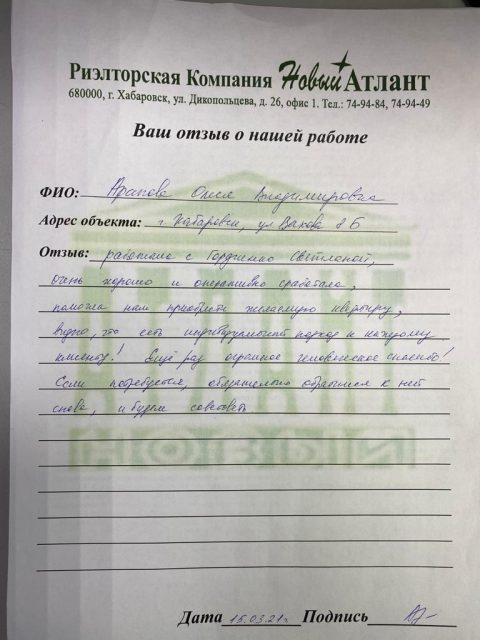 Риэлторская Компания Новый Атлант
680000, г. Хабаровск, ул. Дикопольцева, д. 26, офис 1. Тел.: 74-94-84, 74-94-49
Ваш отзыв о нашей работе
ФИО: Арапова Олеся Владимировна
Адрес объекта: г. Хабаровск, ул 8 Б
Отзыв: работали с Гордиенко Светланой,
очень хорошо и оперативно сработала,
помогла нам приобрести желаемую квартиру,
видно, что есть индивидуальный подход к каждому
клиенту! Ещё раз огромное человеческое спасибо!
Если потребуется, обязательно обратимся к ней
снова, и будем советовать
Дата 15.03.21г. Подпись